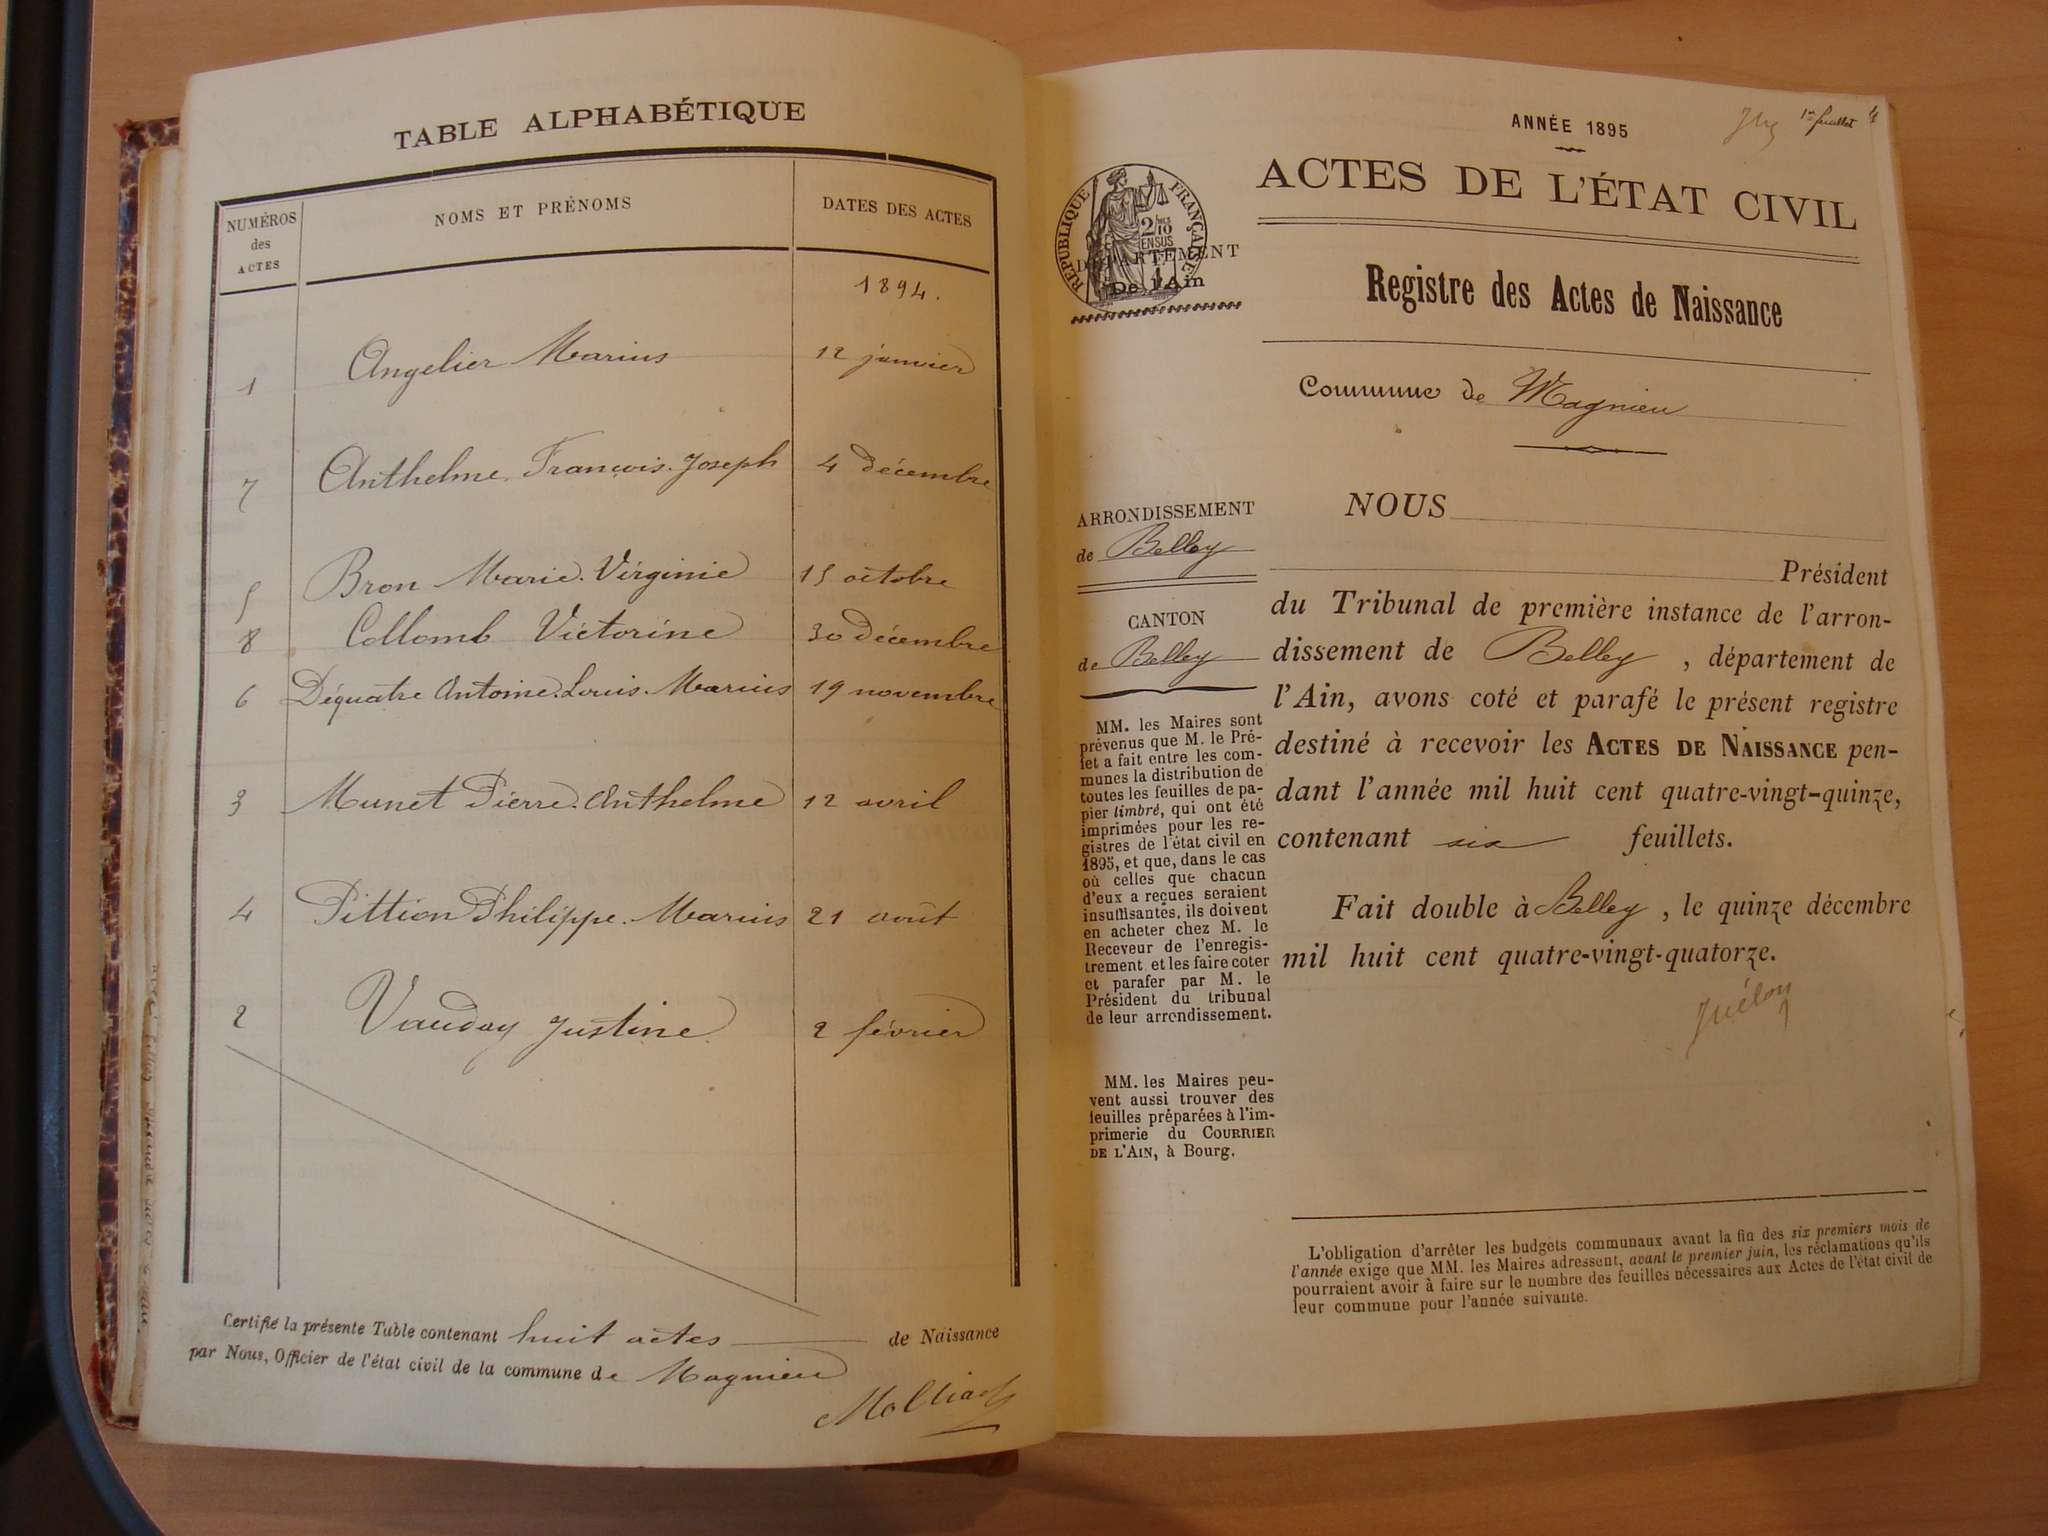 TABLE ALPHABÉTIQUE
NUMÉROS des ACTES NOMS ET PRÉNOMS DATES DES ACTES
1894.
1 Angelier Marius 12 janvier
7 Anthelme François Joseph 4 décembre
5 Bron Marie Virginie 15 octobre
8 Collomb Victorine 30 décembre
6 Déquatre Antoine Louis Marius 19 novembre
3 Munet Pierre Anthelme 12 avril
4 Pittion Philippe Marius 21 août
2 Vauday Justine 2 février
Certifié la présente Table contenant huit actes de Naissance
par Nous, Officier de l'état civil de la commune de Magnieu
1er feuillet
ANNÉE 1895
ACTES DE L'ÉTAT CIVIL
RÉPUBLIQUE FRANÇAISE
2/10
EN SUS
DÉPARTEMENT
De l'Ain
Registre des Actes de Naissance
Commune de Magnieu
ARRONDISSEMENT
de Belley
CANTON
de Belley
MM. les Maires sont
prévenus que M. le Pré-
fet a fait entre les com-
munes la distribution de
toutes les feuilles de pa-
pier timbré, qui ont été
imprimées pour les re-
gistres de l'état civil en
1895, et que, dans le cas
où celles que chacun
d'eux a reçues seraient
insuffisantes, ils doivent
en acheter chez M. le
Receveur de l'enregis-
trement et les faire coter
et parafer par M. le
Président du tribunal
de leur arrondissement.
MM. les Maires peu-
vent aussi trouver des
feuilles préparées à l'im-
primerie du COURRIER
DE L'AIN, à Bourg.
NOUS
Président
du Tribunal de première instance de l'arron-
dissement de Belley, département de
l'Ain, avons coté et parafé le présent registre
destiné à recevoir les ACTES DE NAISSANCE pen-
dant l'année mil huit cent quatre-vingt-quinze,
contenant six feuillets.
Fait double à Belley, le quinze décembre
mil huit cent quatre-vingt-quatorze.
L'obligation d'arrêter les budgets communaux avant la fin des six premiers mois de
l'année exige que MM. les Maires adressent, avant le premier juin, les réclamations qu'ils
pourraient avoir à faire sur le nombre des feuilles nécessaires aux Actes de l'état civil de
leur commune pour l'année suivante.